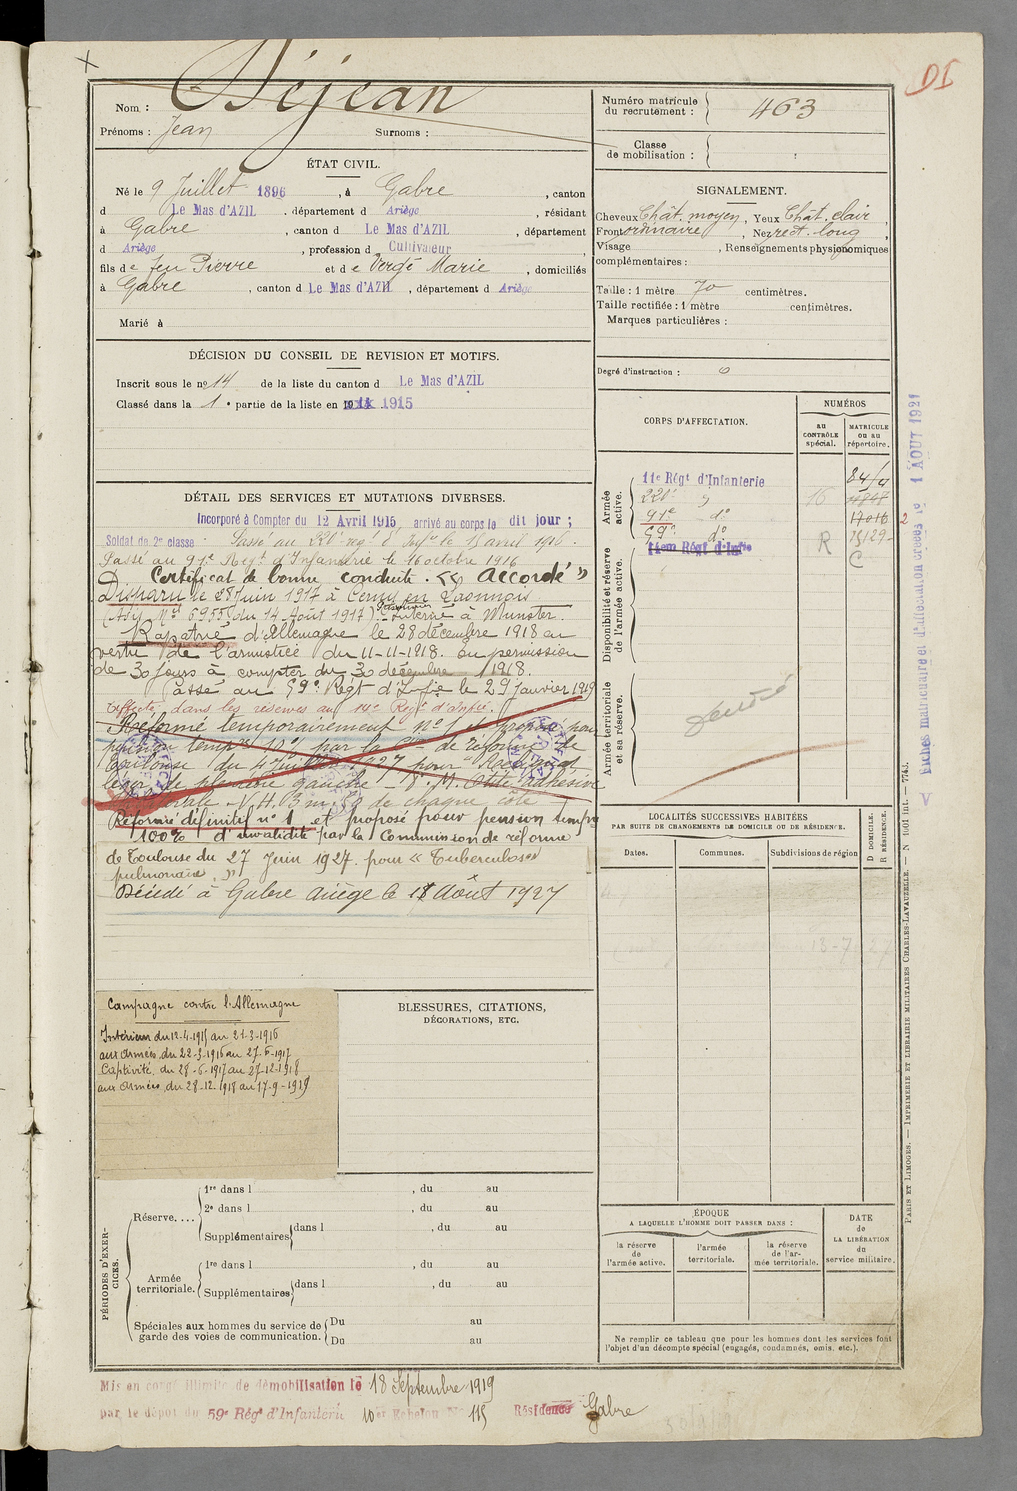 DI
Nom : Déjean
Prénoms : Jean Surnoms :
Numéro matricule du recrutement : 463
Classe de mobilisation :
ÉTAT CIVIL.
Né le 9 Juillet 1896, à Gabre, canton
d Le Mas d'AZIL. département d Ariège, résidant
à Gabre, canton d Le Mas d'AZIL, département
d Ariège, profession d Cultivateur,
fils de feu Pierre et de Vergé Marie, domiciliés
à Gabre, canton d Le Mas d'AZIL, département d Ariège
Marié à
SIGNALEMENT.
Cheveux Chât. moyen, Yeux Chât. clair,
Front ordinaire, Nez rect. long,
Visage , Renseignements physionomiques
complémentaires :
Taille : 1 mètre 70 centimètres.
Taille rectifiée : 1 mètre centimètres.
Marques particulières :
Degré d'instruction : 0
DÉCISION DU CONSEIL DE REVISION ET MOTIFS.
Inscrit sous le nº 14 de la liste du canton d Le Mas d'AZIL
Classé dans la 1e partie de la liste en 1915
DÉTAIL DES SERVICES ET MUTATIONS DIVERSES.
Incorporé à Compter du 12 Avril 1915, arrivé au corps le dit jour ;
Soldat de 2e classe : Passé au 220e rég. d'Inf. le 15 avril 1916.
Passé au 91e Régt d'Infanterie le 16 octobre 1916
Certificat de bonne conduite. "Accordé"
Disparu le 28 Juin 1917 à Cerny en Laonnois
(Avis Nel 6955 du 14 Août 1917) Prisonnier Interné à Munster.
Rapatrié d'Allemagne le 28 décembre 1918 en
vertu de l'armistice du 11-11-1918. En permission
de 30 jours à compter du 30 décembre 1918.
Passé au 59e Régt d'Infie le 29 Janvier 1919
Affecté dans les réserves au 14e Régt d'Infie.
Réformé temporairement Nº 1 et proposé pour
pension temp. 10% par la Con de réforme de
Toulouse du 4 Juillet 1927 pour
de pleurésie gauche
de chaque côté
Réformé définitif nº 1 et proposé pour pension temp
100% d'invalidité par la Commission de réforme
de Toulouse du 27 Juin 1927. pour « Tuberculose
pulmonaire. »
Décédé à Gabre Ariège le 18 Août 1927
CORPS D'AFFECTATION.
NUMÉROS
au CONTRÔLE spécial.
MATRICULE ou au répertoire.
Armée active.
11e Régt d'Infanterie
220e
91e dº
59e dº
14eme Régt d'Infie
16
R
C
2
Disponibilité et réserve de l'armée active.
Armée territoriale et sa réserve.
Fiches matriculaire et d'affectation créées le 1 AOUT 1921
LOCALITÉS SUCCESSIVES HABITÉES
PAR SUITE DE CHANGEMENTS DE DOMICILE OU DE RÉSIDENCE.
D DOMICILE.
R RÉSIDENCE.
Dates. Communes. Subdivisions de région
Campagne contre l'Allemagne
Intérieur du 12-4-1915 au 21-3-1916
aux Armées du 22-3-1916 au 27-6-1917
Captivité du 28-6-1917 au 27-12-1918
aux Armées du 28-12-1918 au 17-9-1919
BLESSURES, CITATIONS,
DÉCORATIONS, ETC.
PÉRIODES D'EXERCICES.
Réserve....
1re dans l , du au
2e dans l , du au
Supplémentaires dans l , du au
Armée territoriale.
1re dans l , du au
Supplémentaires dans l , du au
Spéciales aux hommes du service de
garde des voies de communication.
Du au
Du au
ÉPOQUE
A LAQUELLE L'HOMME DOIT PASSER DANS :
la réserve de l'armée active.
l'armée territoriale.
la réserve de l'armée territoriale.
DATE de LA LIBÉRATION du service militaire.
Ne remplir ce tableau que pour les hommes dont les services font
l'objet d'un décompte spécial (engagés, condamnés, omis, etc.).
PARIS ET LIMOGES. — IMPRIMERIE ET LIBRAIRIE MILITAIRES CHARLES-LAVAUZELLE. — N 1601 int. — 7743.
Mis en congé illimité de démobilisation le 18 Septembre 1919
par le dépôt du 59e Régt d'Infanterie 10er Echelon Nº 115 Résidence Gabre